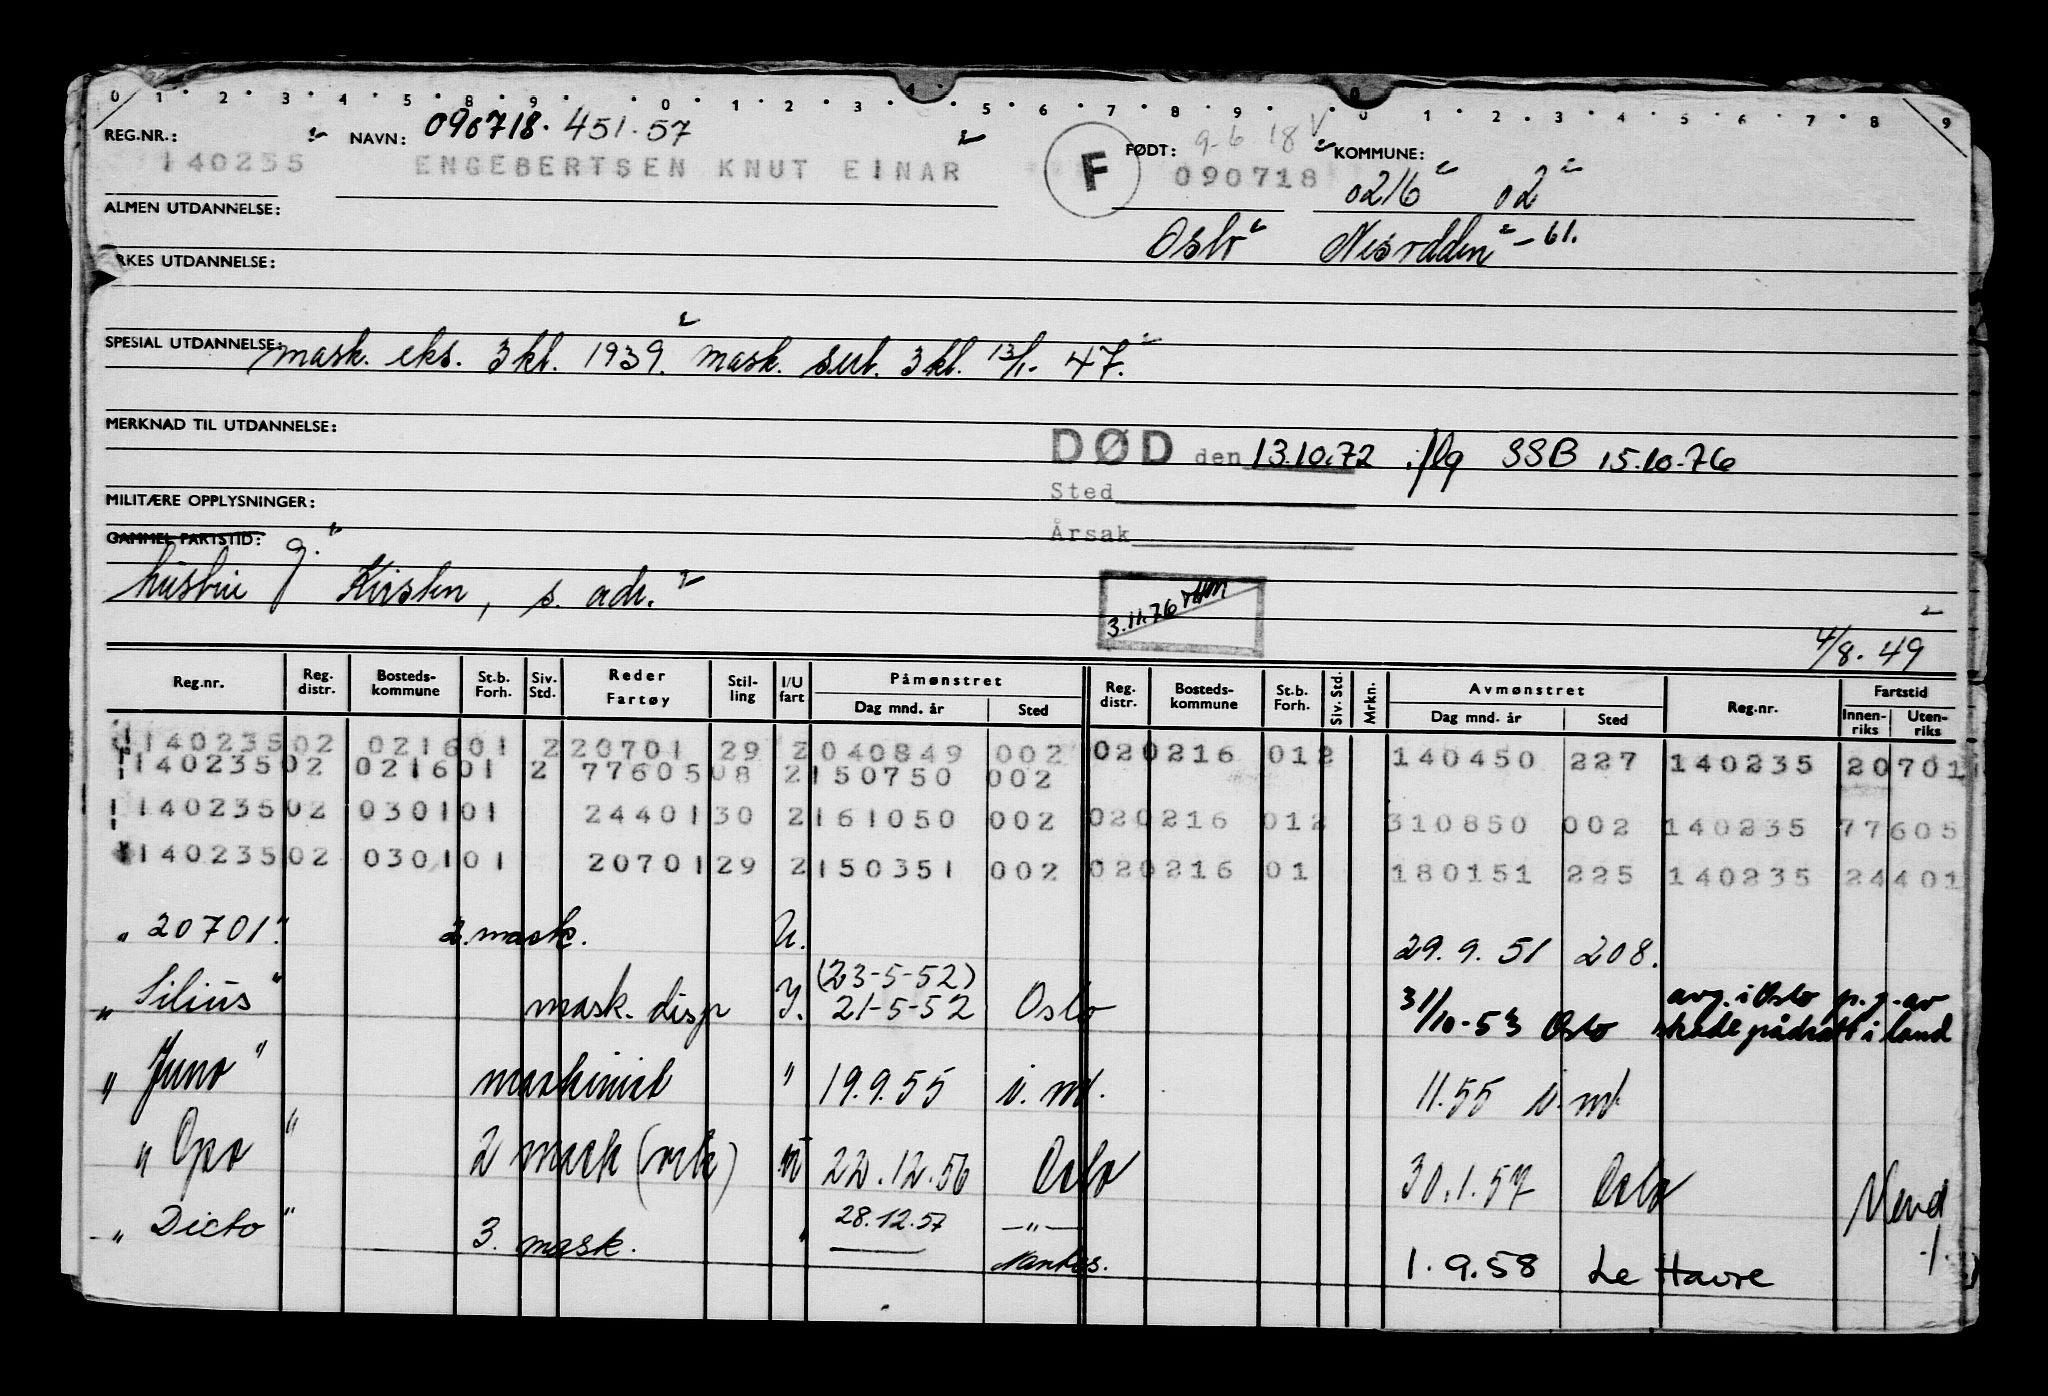 0 1 2 3 4 5 8 9 0 1 2 3 4 5 6 7 8 9 0 1 2 3 4 5 6 7 8 9
REG.NR.: NAVN: 090718. 451.57 FØDT: 9-6 18 V KOMMUNE:
140255 ENGEBERTSEN KNUT EINAR F 090718 0216 02
ALMEN UTDANNELSE: Oslo Nesodden -61.
RKES UTDANNELSE:
SPESIAL UTDANNELSE: mask. eks. 3 kl. 1939. mask. sert. 3 kl. 13/1. 47.
MERKNAD TIL UTDANNELSE:
DØD den 13.10.72 iflg SSB 15.10.76
MILITÆRE OPPLYSNINGER: Sted
GAMMEL FARTSTID: g. Årsak
hustru Kirsten, s. adr.
3.11.76
4/8. 49
Reg.nr. Reg. distr. Bosteds- kommune St.b. Forh. Siv. Std. Reder Fartøy Stil- ling I/U fart Påmønstret Dag mnd. år Sted Reg. distr. Bosteds- kommune St.b. Forh. Siv. Std. Mrkn. Avmønstret Dag mnd. år Sted Reg.nr. Fartstid Innen- riks Uten- riks
140235 02 0216 01 2 20701 29 2 040849 002 02 0216 01 2 140450 227 140235 20701
140235 02 0216 01 2 77605 08 2 150750 002
140235 02 0301 01 24401 30 2 161050 002 02 0216 01 2 310850 002 140235 77605
140235 02 0301 01 20701 29 2 150351 002 02 0216 01 180151 225 140235 24401
" 20701" 2. mask. U. 29. 9. 51 208.
(23-5-52)
" Silius" mask. disp I. 21-5-52 Oslo 31/10-53 Oslo avg. i Oslo p.g.av
skade pådratt i land
" Juno" maskinist " 19.9.55 u. m. 11.55 u. m.
" Opo" 2 mask (vik) U 22.12.56 Oslo 30.1.57 Oslo Vend
" Dicto" 3. mask. " 28.12.57 —"— -/.
Nantes. 1.9.58 Le Havre